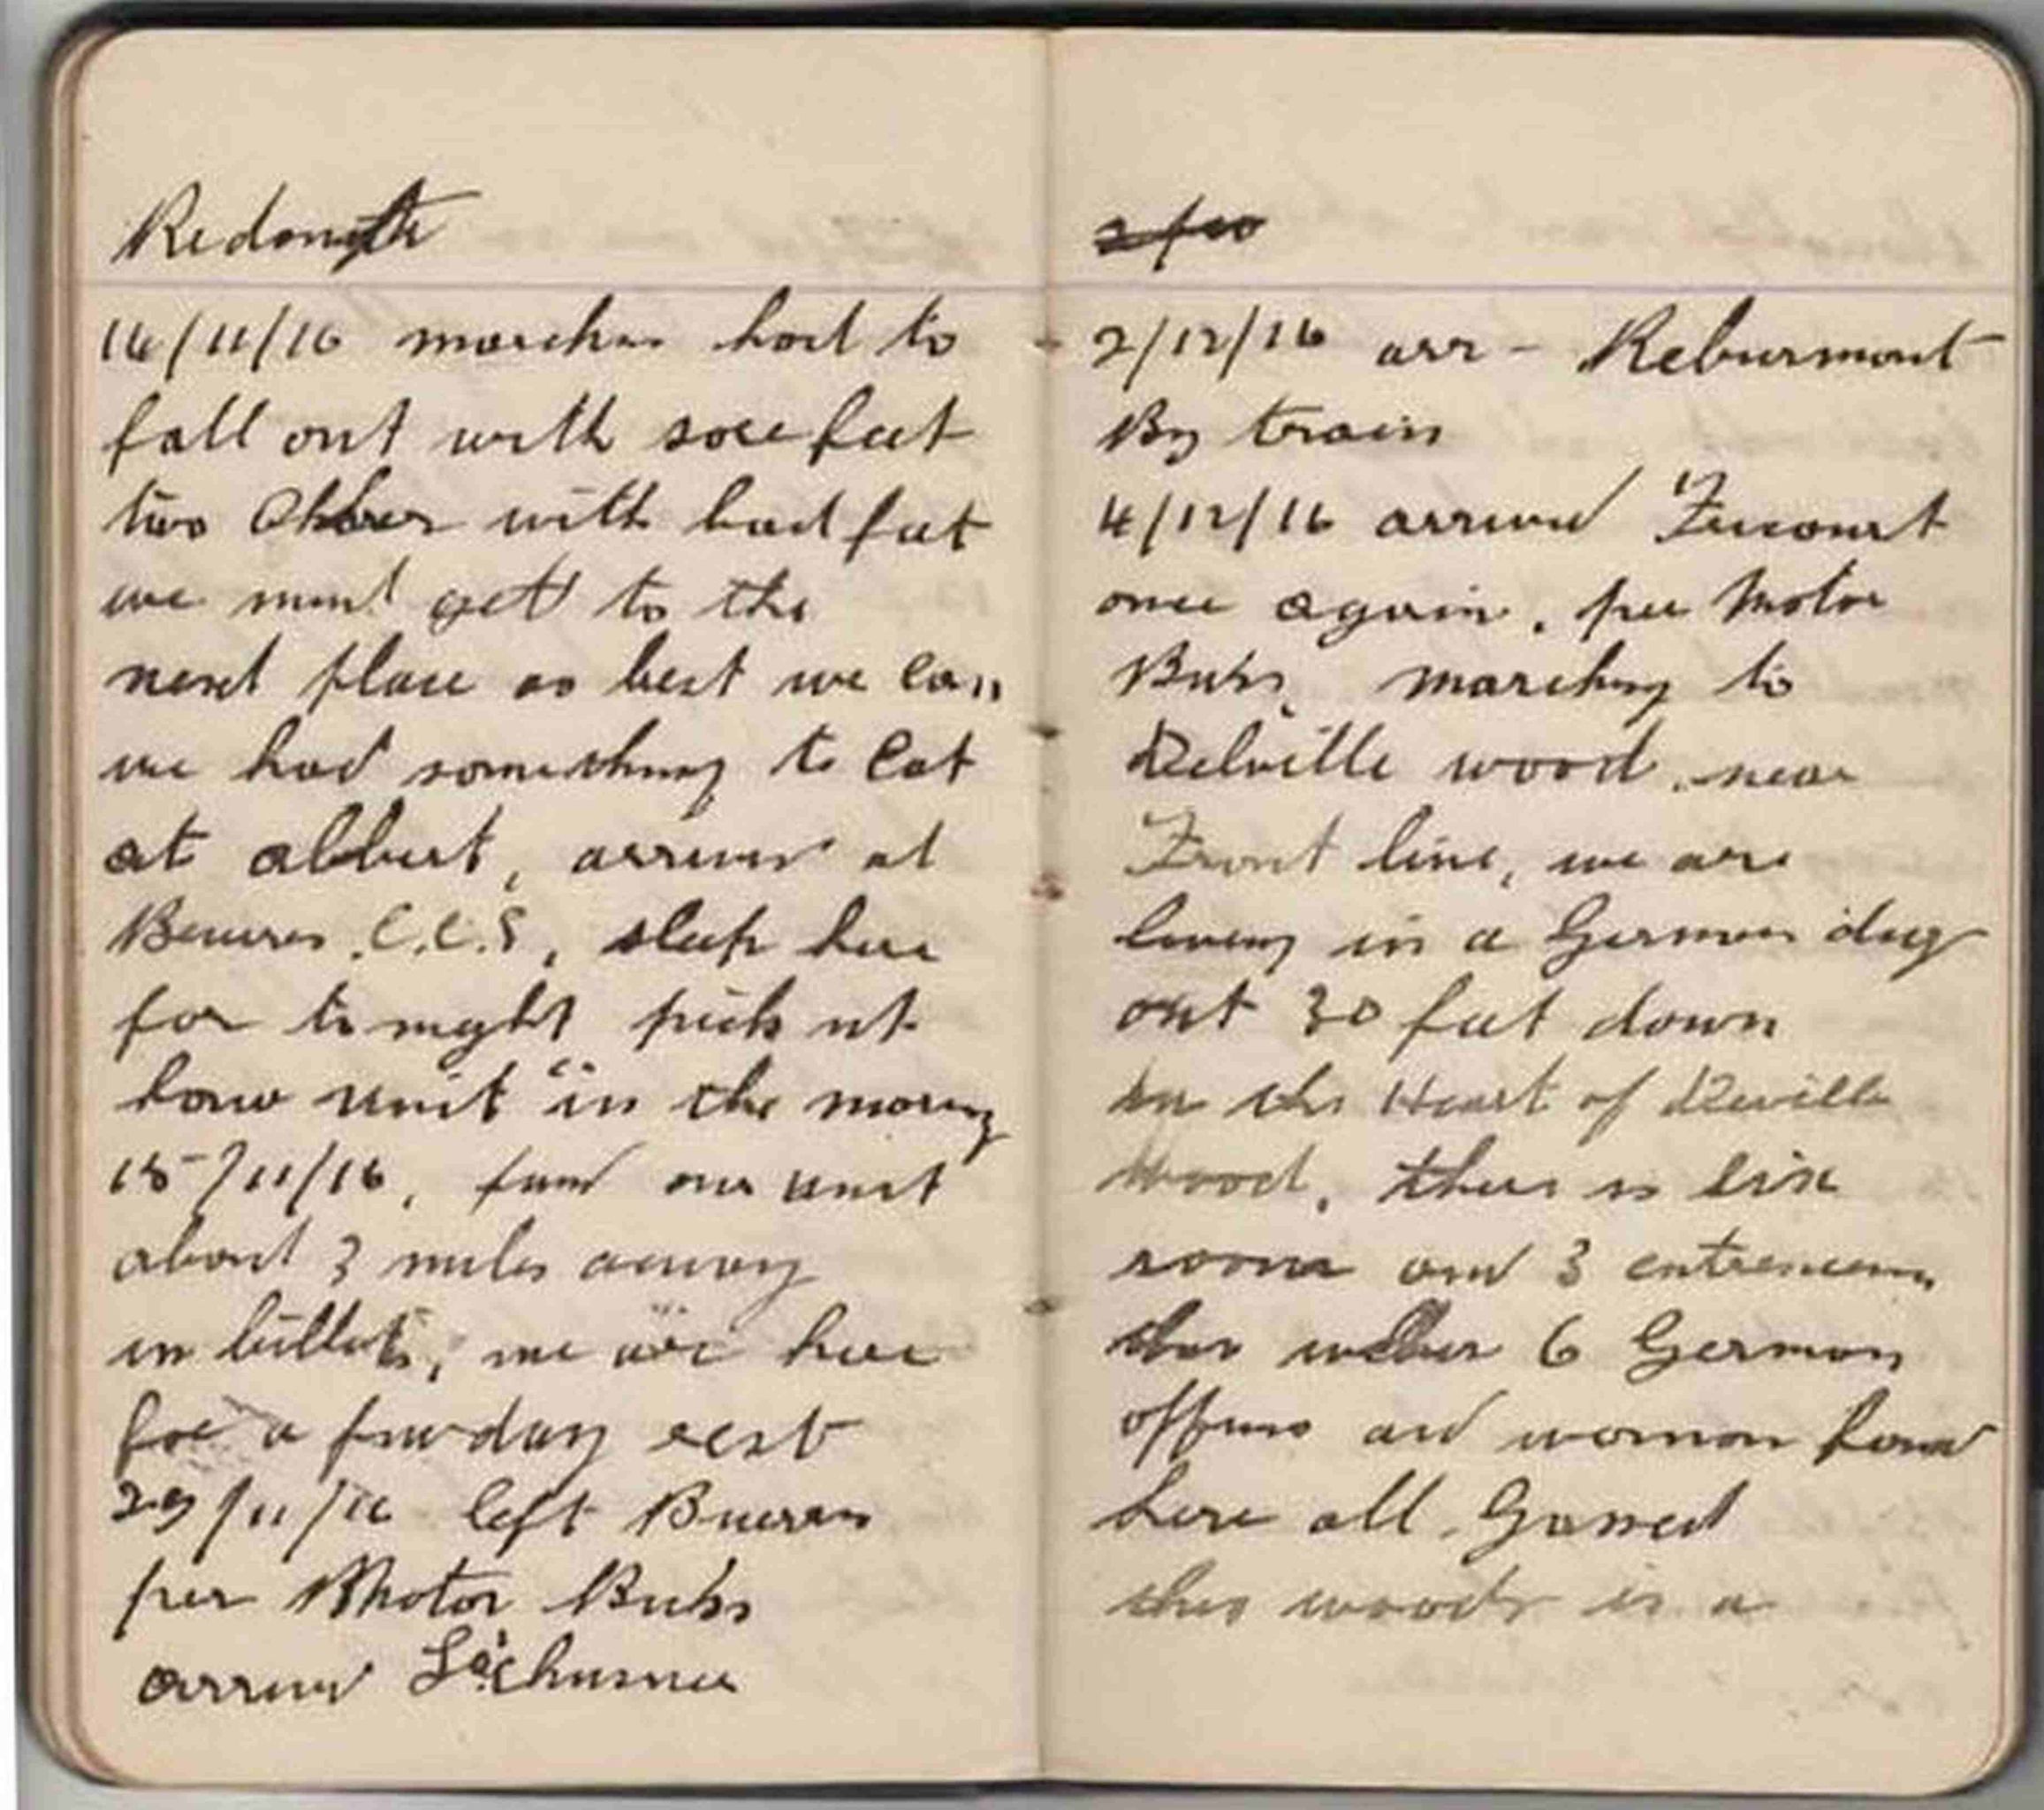 14/11/16 marches had to
fall out with sore feet
two others with bad feet
we must get to the
next place as best we can
we had something to Eat
at albert, arrived at
C.C.S, sleep here
for to night pick up
unit in the morng
15/11/16, found our unit
about 3 miles away
in billets, we are here
for a few day rest
29/11/16 left
per Motor Bubs
arrived
2/12/16 arr - Reburmont
By train
4/12/16 arrived Fricourt
once again, per Motor
Bubs, marching to
Delville wood, near
Front line, we are
living in a German dug
out 30 feet down
in the Heart of Deville
Wood, there is six
rooms and 3
6 German
officers and woman found
here all Gassed
this woods is a